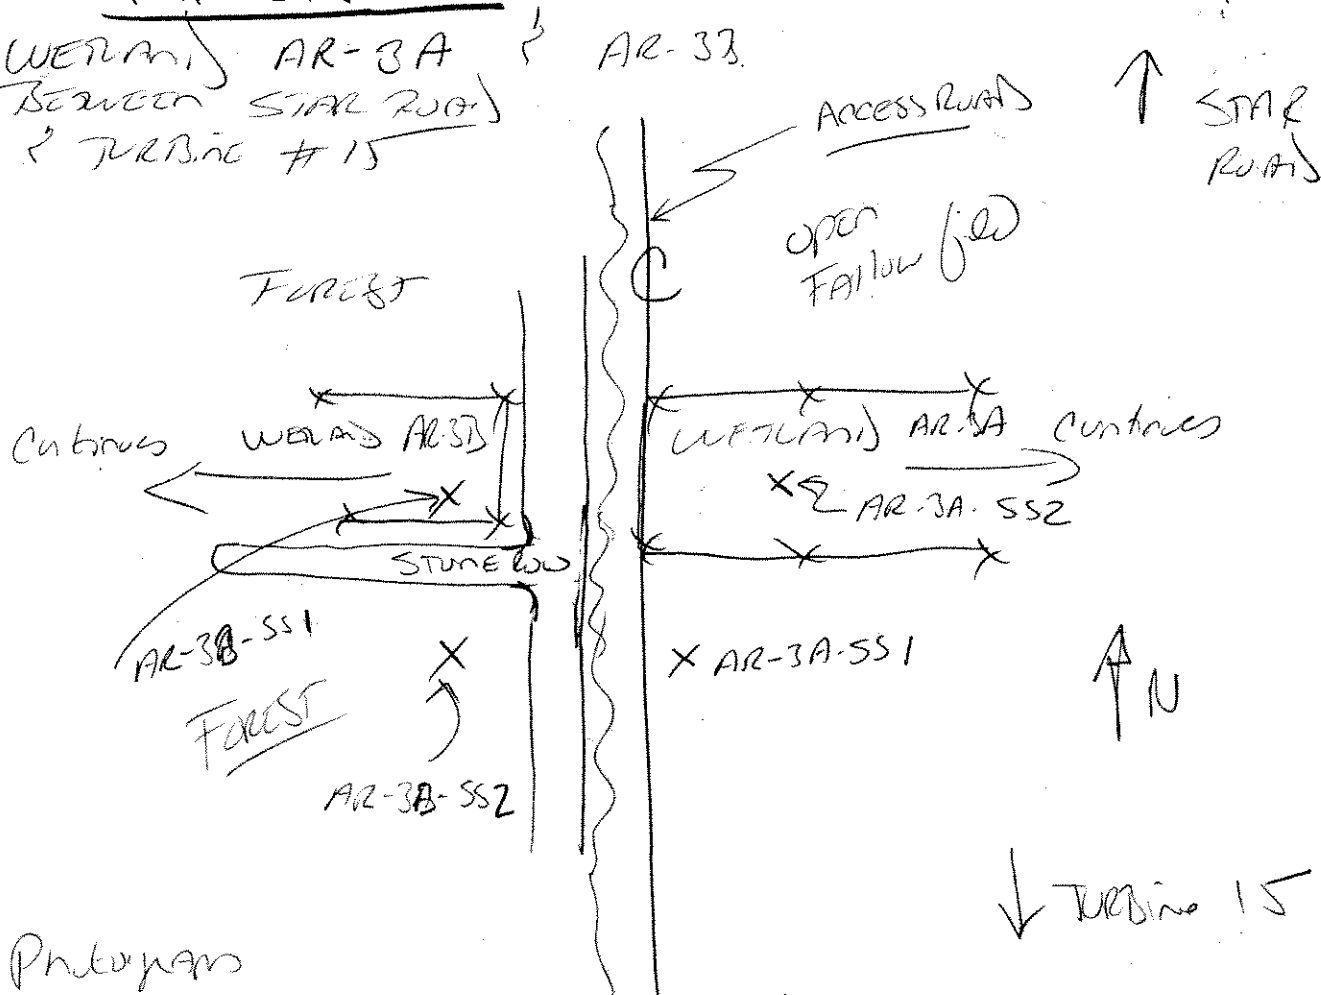 WETLAND AR-3A & AR-3B.
BETWEEN STAR ROAD
& TURBINE # 15
ACCESS ROAD
STAR
ROAD
OPEN
FALLOW field
FOREST
Continues WETLAND AR-3B
WETLAND AR-3A Continues
AR-3A-SS2
STONE ROW
AR-3B-SS1
AR-3A-SS1
N
FOREST
AR-3B-SS2
TURBINE 15
Photographs